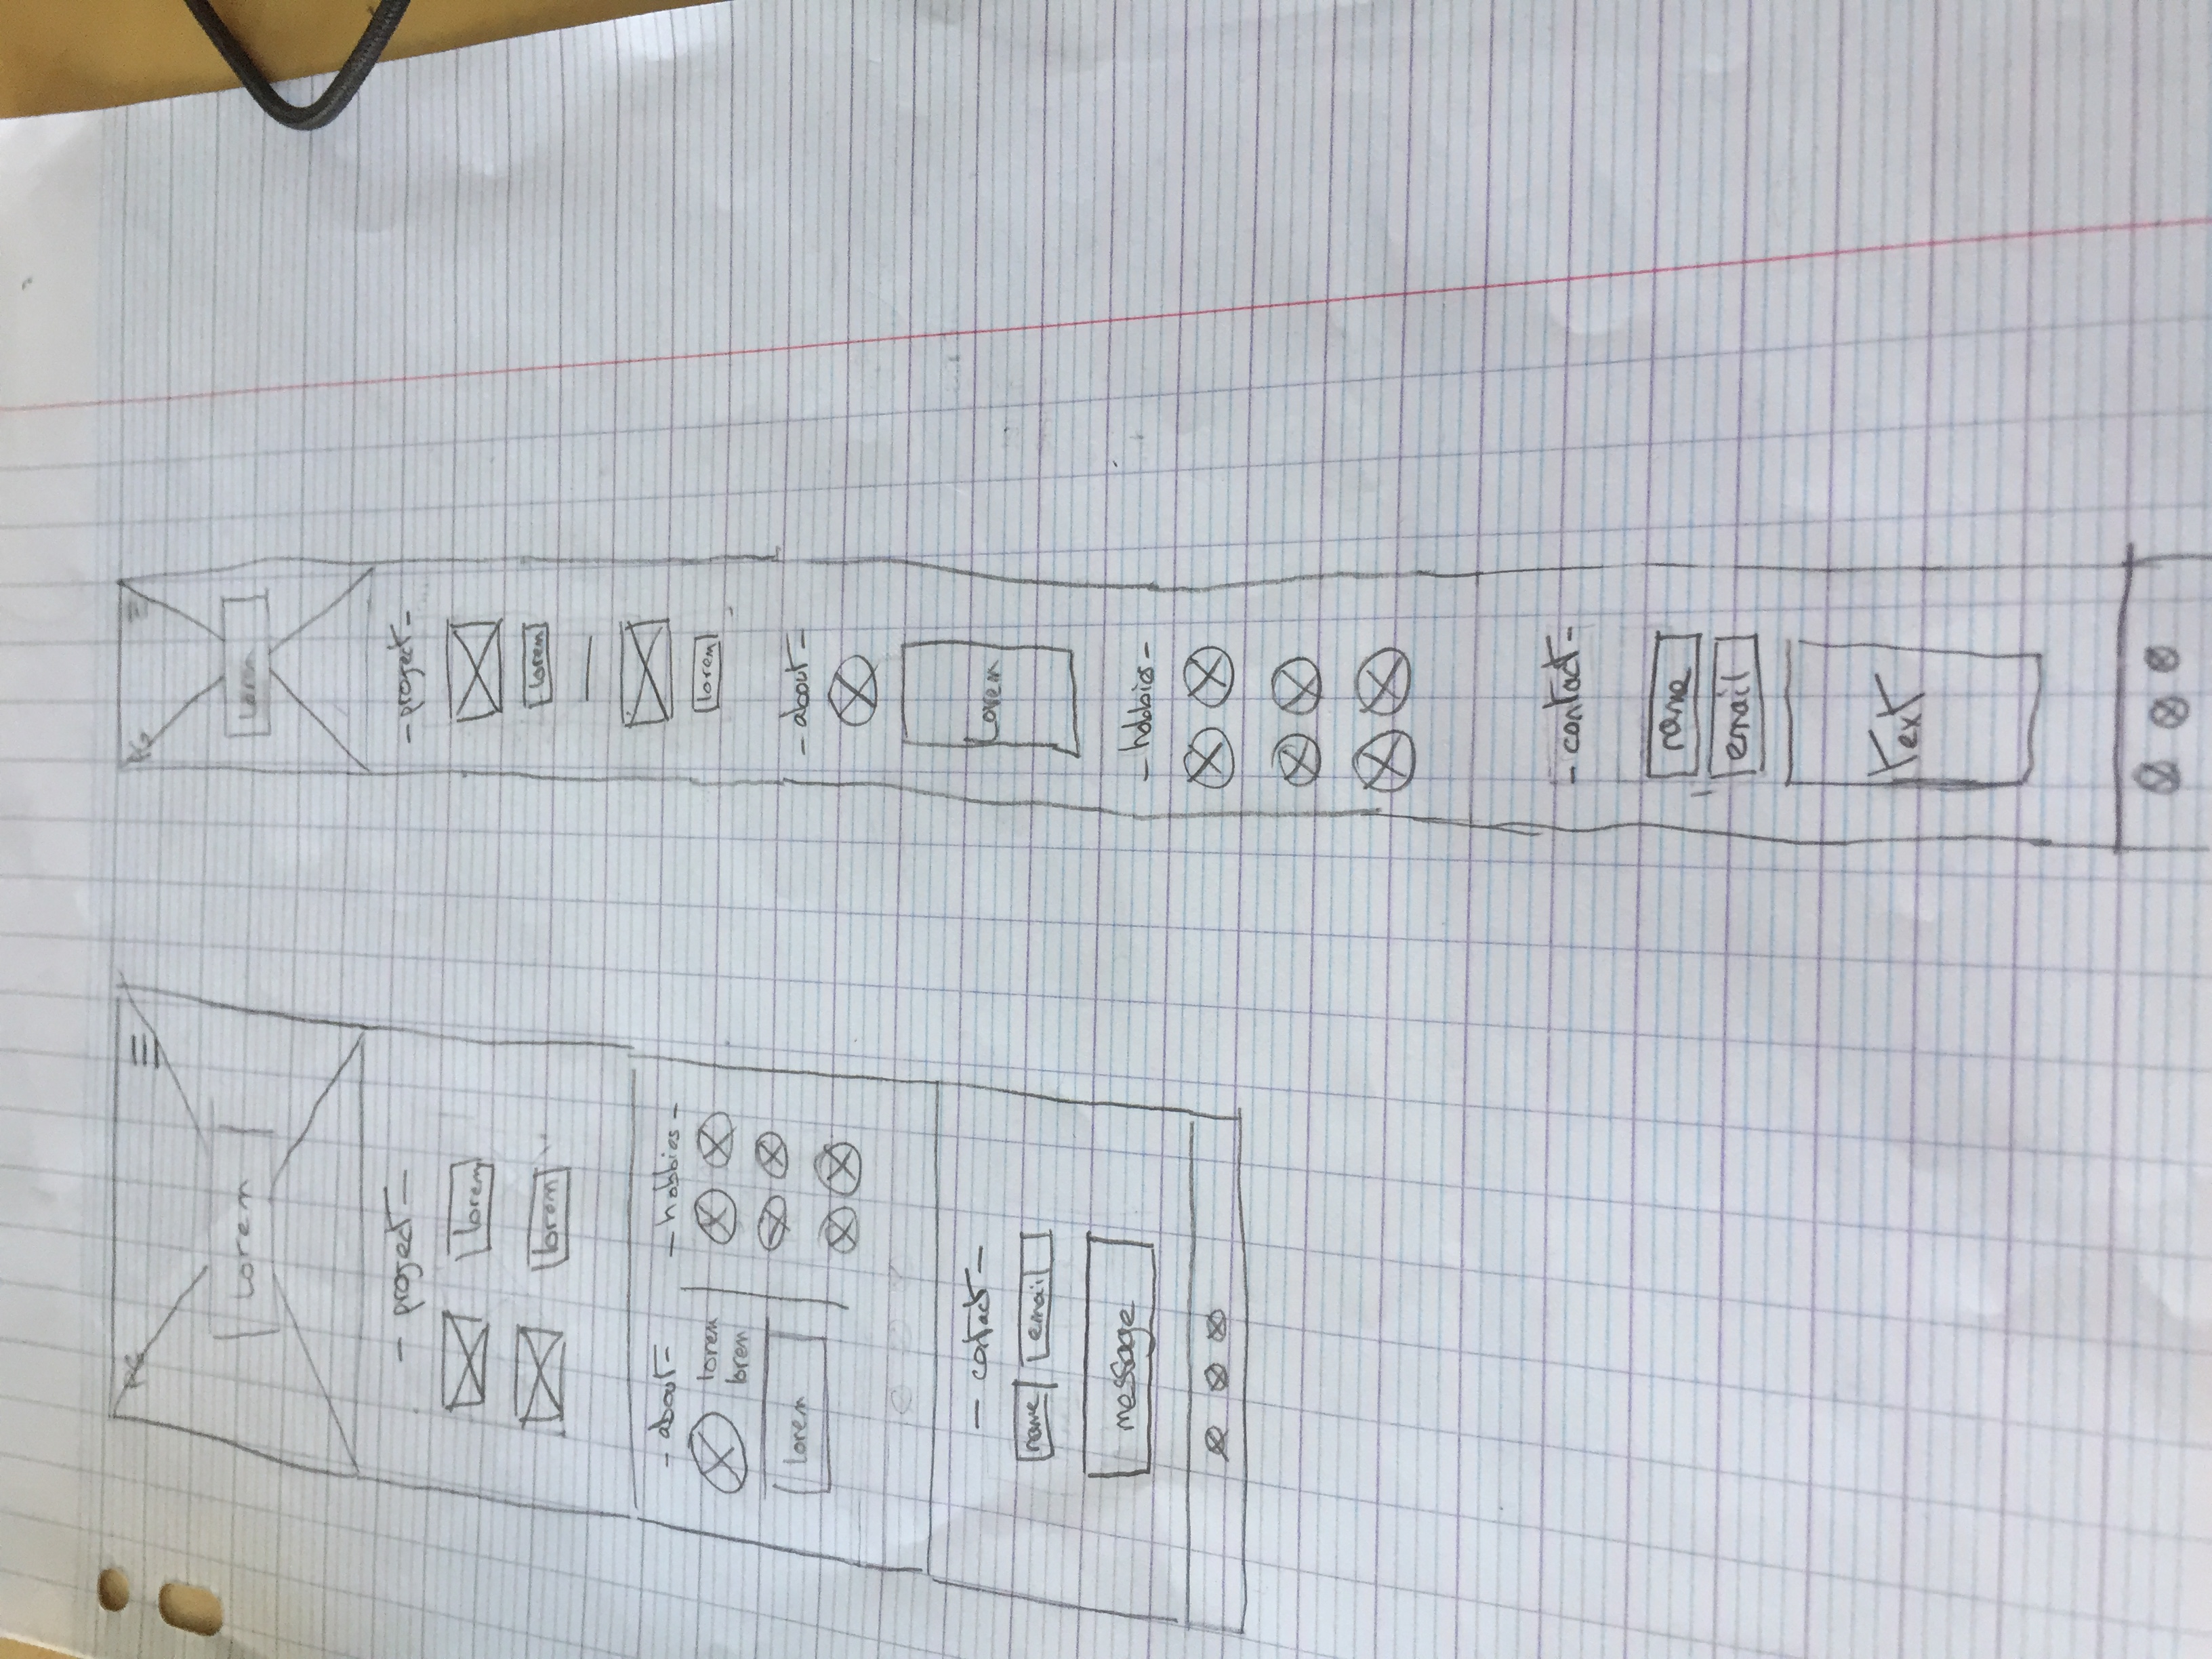 PG
Lorem
- project -
lorem
lorem
- about -
- hobbies -
lorem
lorem
lorem
- contact -
name
email
message
PG
Lorem
- project -
lorem
lorem
- about -
Lorem
- hobbies -
- contact -
name
email
Text